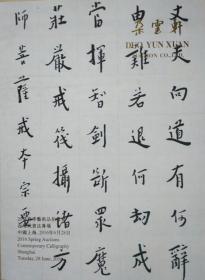 朵雲軒
DUO YUN XUAN
丈夫向道有何辭
由難若退何劫成
當揮智劍斷眾魔
莊嚴戒筏攝諸方
師菩薩戒本宗要
中國上海, 2016年6月28日
2016 Spring Auctions
Contemporary Calligraphy
Shanghai
Tuesday, 28 June,